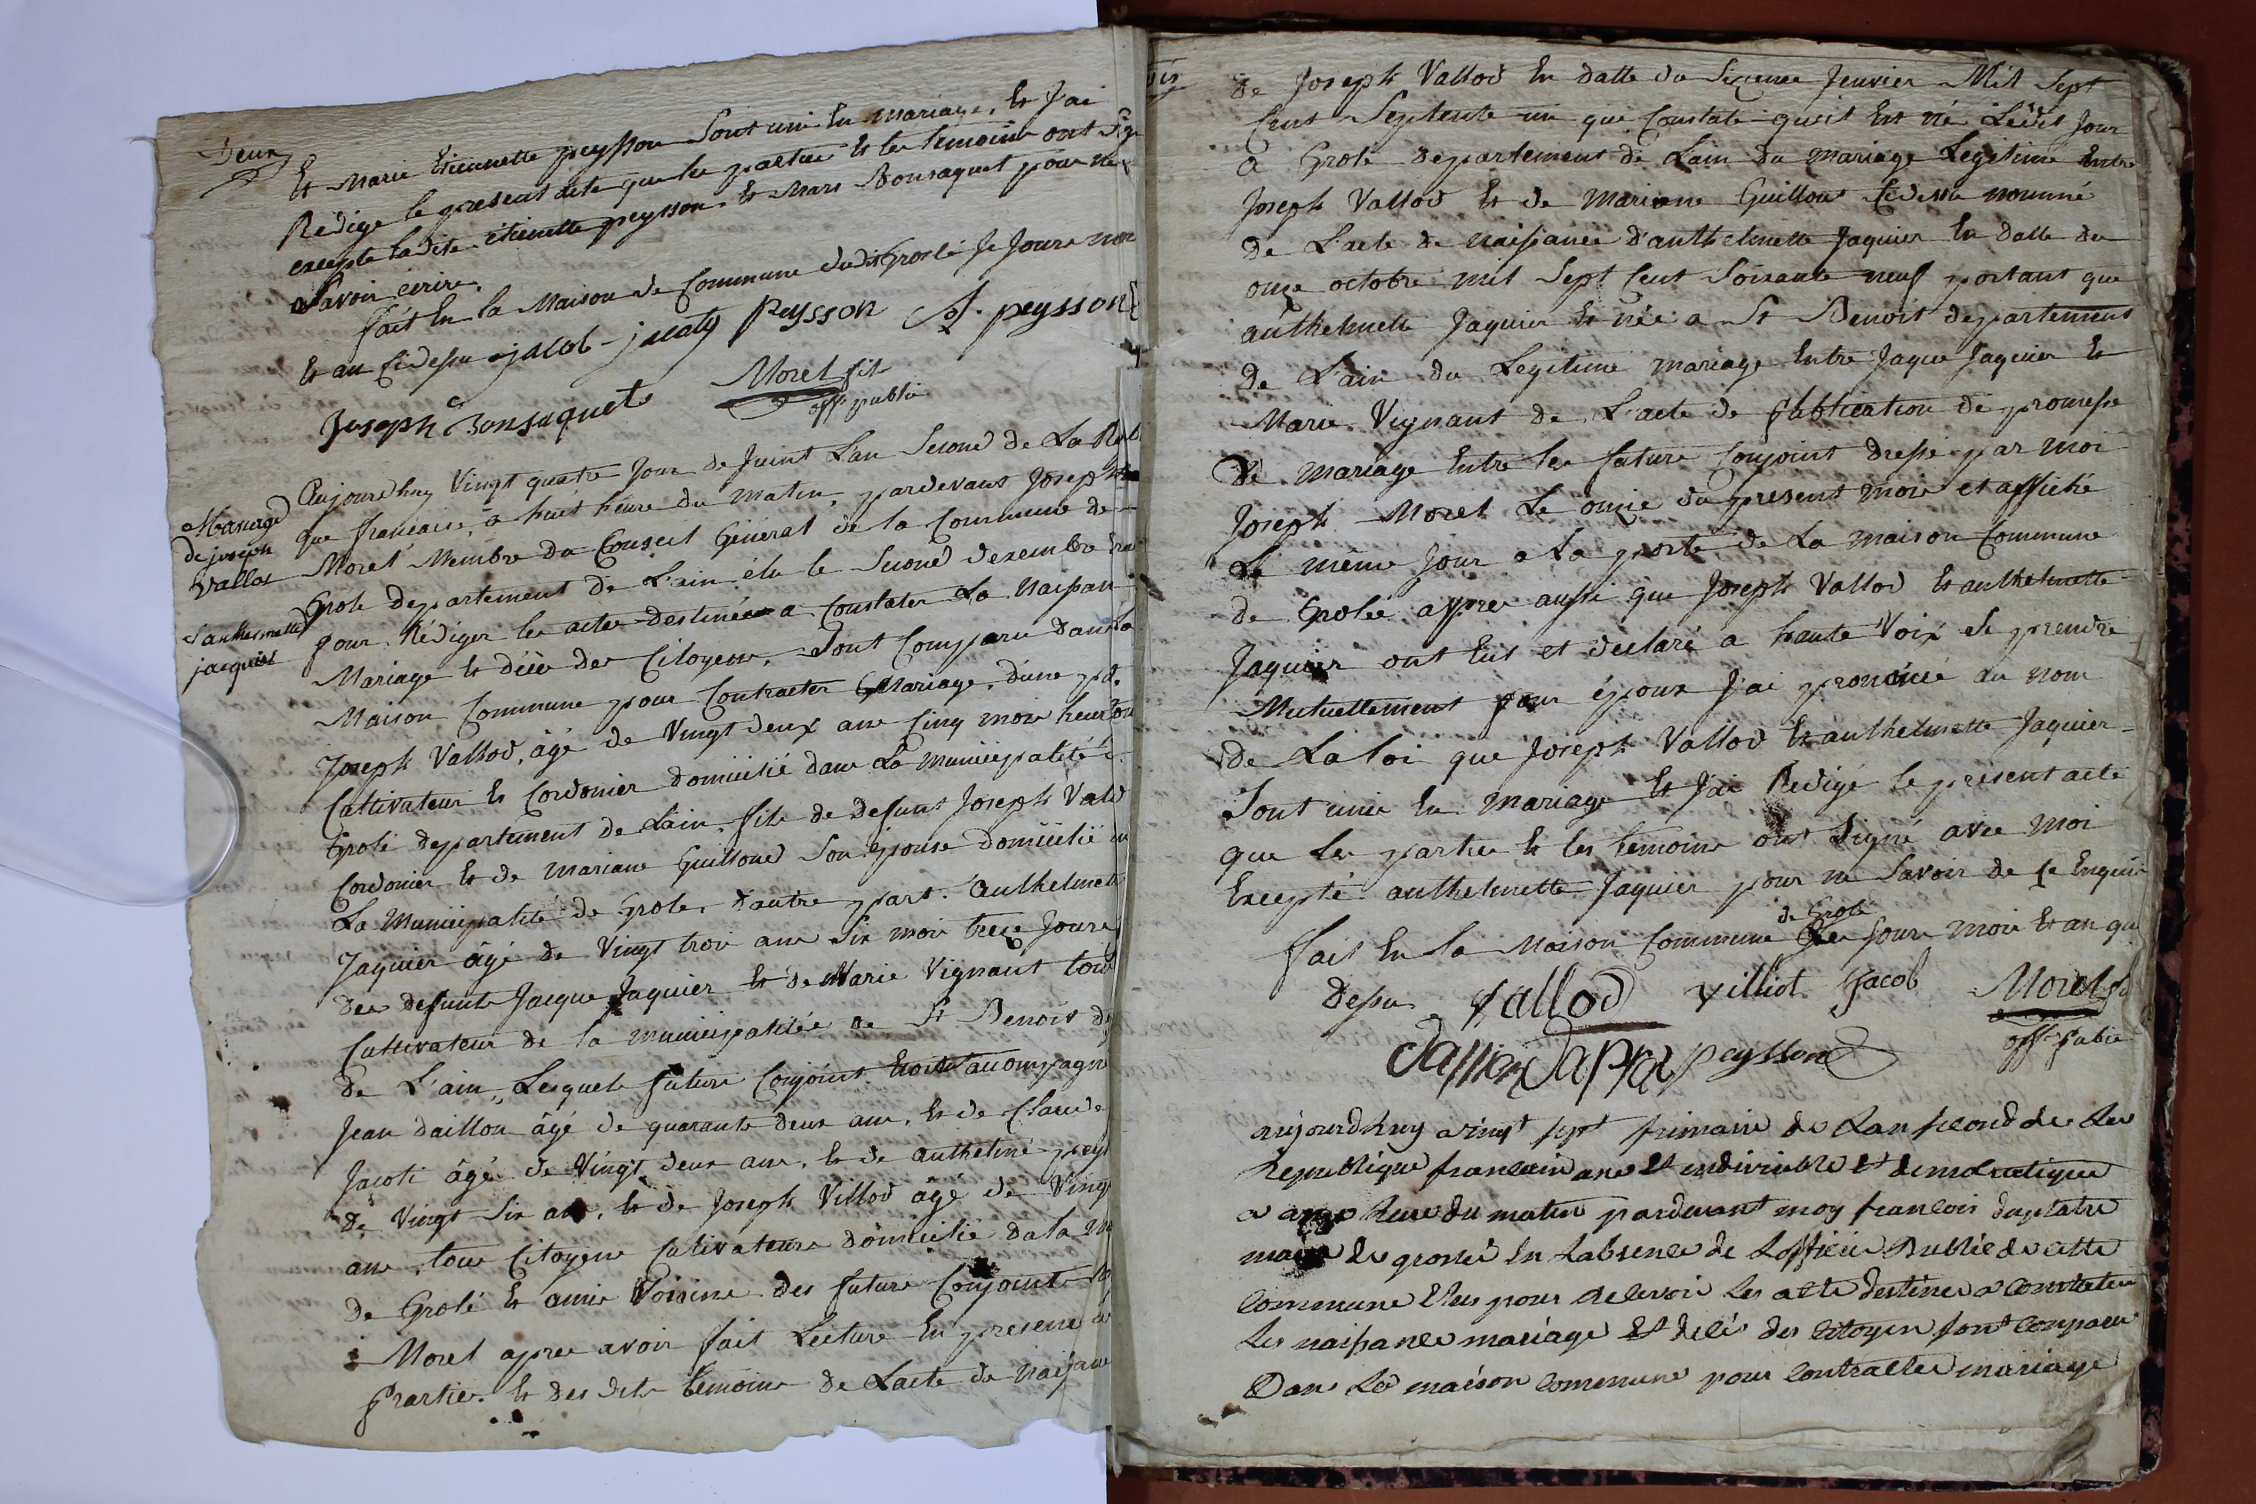 Deux
Et Marie Etiennette peysson Sont uni En mariage, Et J'ai
Rédigé le present acte que les parties Et les temoins ont Sig
excepté ladite étiennette peysson Et Mars Bonsaquet pour ne
Savoir écrire.
fait En la Maison de Commune dudit Groslé Je Jours mois
Et an Cidessu jacob - jacoty Peysson A. peysson
Joseph Bonsaquet Morel fils
offr public
Mariage
de joseph
vallod
anthelmette
jacquier
Aujourdhuy Vingt quatre Jour de Juint L'an Second de La Rep
que francaise, a huit heure du matin, pardevant Joseph
Morel Membre du Conseil Général de la Commune de
Grolé departement de L'ain élu le Second desembre
pour Rédiger les actes destinées a Constater La Naissan
Mariage Et décè des Citoyens. Sont Comparu dans la
Maison Commune pour Contracter Mariage, d'une pt.
Joseph Vallod, âgé de Vingt deux ans Cinq mois heur
Cultivateur Et Cordonier domicilié dans La municipalité
Grolé departement de Lain. fils de defunt Joseph Valod
Cordonier Et de mariane Guilloud Son épouse domicilié
La Municipalité de Grolé, d'autre part. Anthelmet
Jaquier âgé de Vingt trois ans Six mois treize Jours
des defunts Jacque Jaquier Et de Marie Vignant tous
Cultivateur de la municipalitée de St Benoit d
de L'ain, Lesquels futurs Conjoints accompagné
Jean daillon âgé de quarante deux ans, Et de Claude
Jacoti âgé de Vingt deux ans, Et de anthelme peys
de Vingt Six ans, Et de Joseph Villod âgé de Vingt
ans, tous Citoyens Cultivateurs domicilié da la
de Grolé Et amis Voisins des futurs Conjoints
Morel apres avoir fait Lecture En presence d
Parties. Et des dits témoins de L'acte de Naissance
de Joseph Vallod En datte du Janvier Mil Sept
Cent Septente un que Constate quil Est né Ledit Jour
a Grolé departement de Lain du mariage Legitime Entre
Joseph Vallod Et de Mariane Guilloud Cidessu nommé
de L'acte de Naissance d'anthelmette Jaquier En datte du
onze octobre mil Sept Cent Soixante neuf portant que
anthelmette Jaquier Et née a St Benoit departement
de L'ain du Legitime mariage Entre Jaque Jaquier Et
Marie Vignant de L'acte de Publication de promesse
de mariage Entre les futurs Conjoint dressé par moi
Joseph Morel Le onze du present mois et affiché
Le même Jour a La porte de La maison Commune
de Grolée apres aussi que Joseph Vallod Et anthelmette
Jaquier ont Eut et declaré a haute Voix Se prendre
Mutuellement pour épour J'ai prononcé au nom
de La loi que Joseph Vallod Et anthelmette Jaquier
Sont unie En mariage Et J'ai Redigé le present acte
que Les parties Et les temoins ont Signé avec moi
Excepté anthelmette Jaquier pour ne Savoir de ce Enquis
de Grolé
fait En la Maison Commune Les Jours mois Et an que
dessu. Vallod villiot Jacob Morel fils
offr public
peysson
aujourdhuy vingt sept frimaire de Lan second de La
Republique francaise une Et indivisible Et democratique
a heure du matin pardevant moy francois duplatre
maire de groslée En Labsence de Loffisier Public de cette
commune Elus pour recevoir Les acte destinés a constater
Les naissance mariage Et décés des citoyen sont comparu
Dans La maison commune pour contracter mariage